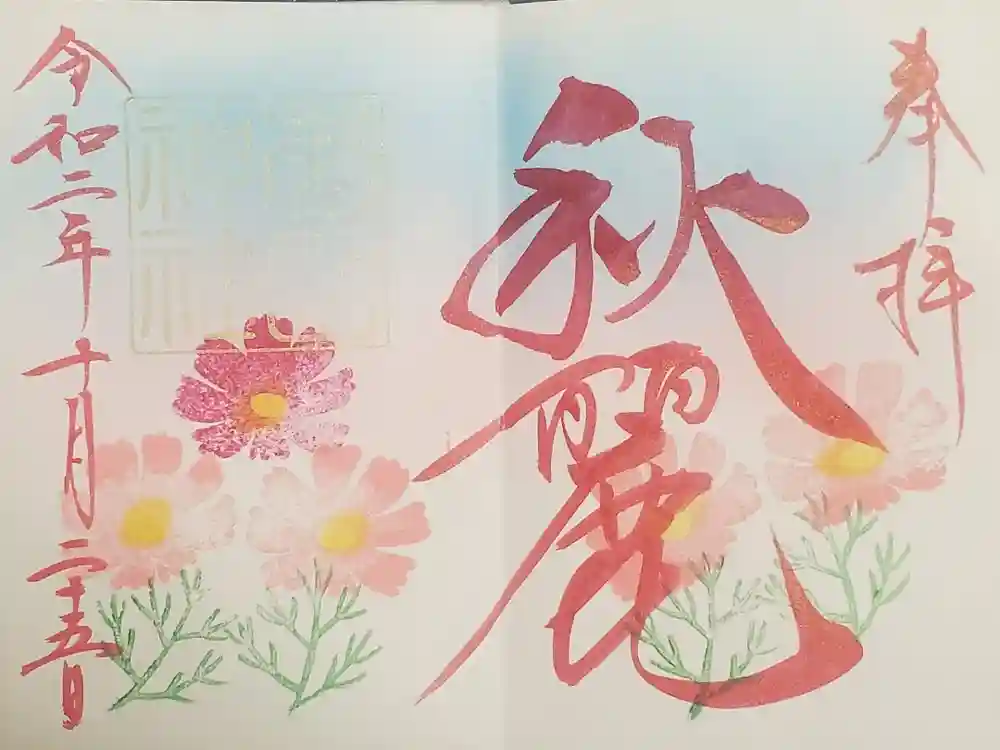 奉拝
秋麗
令和二年十月二十五日